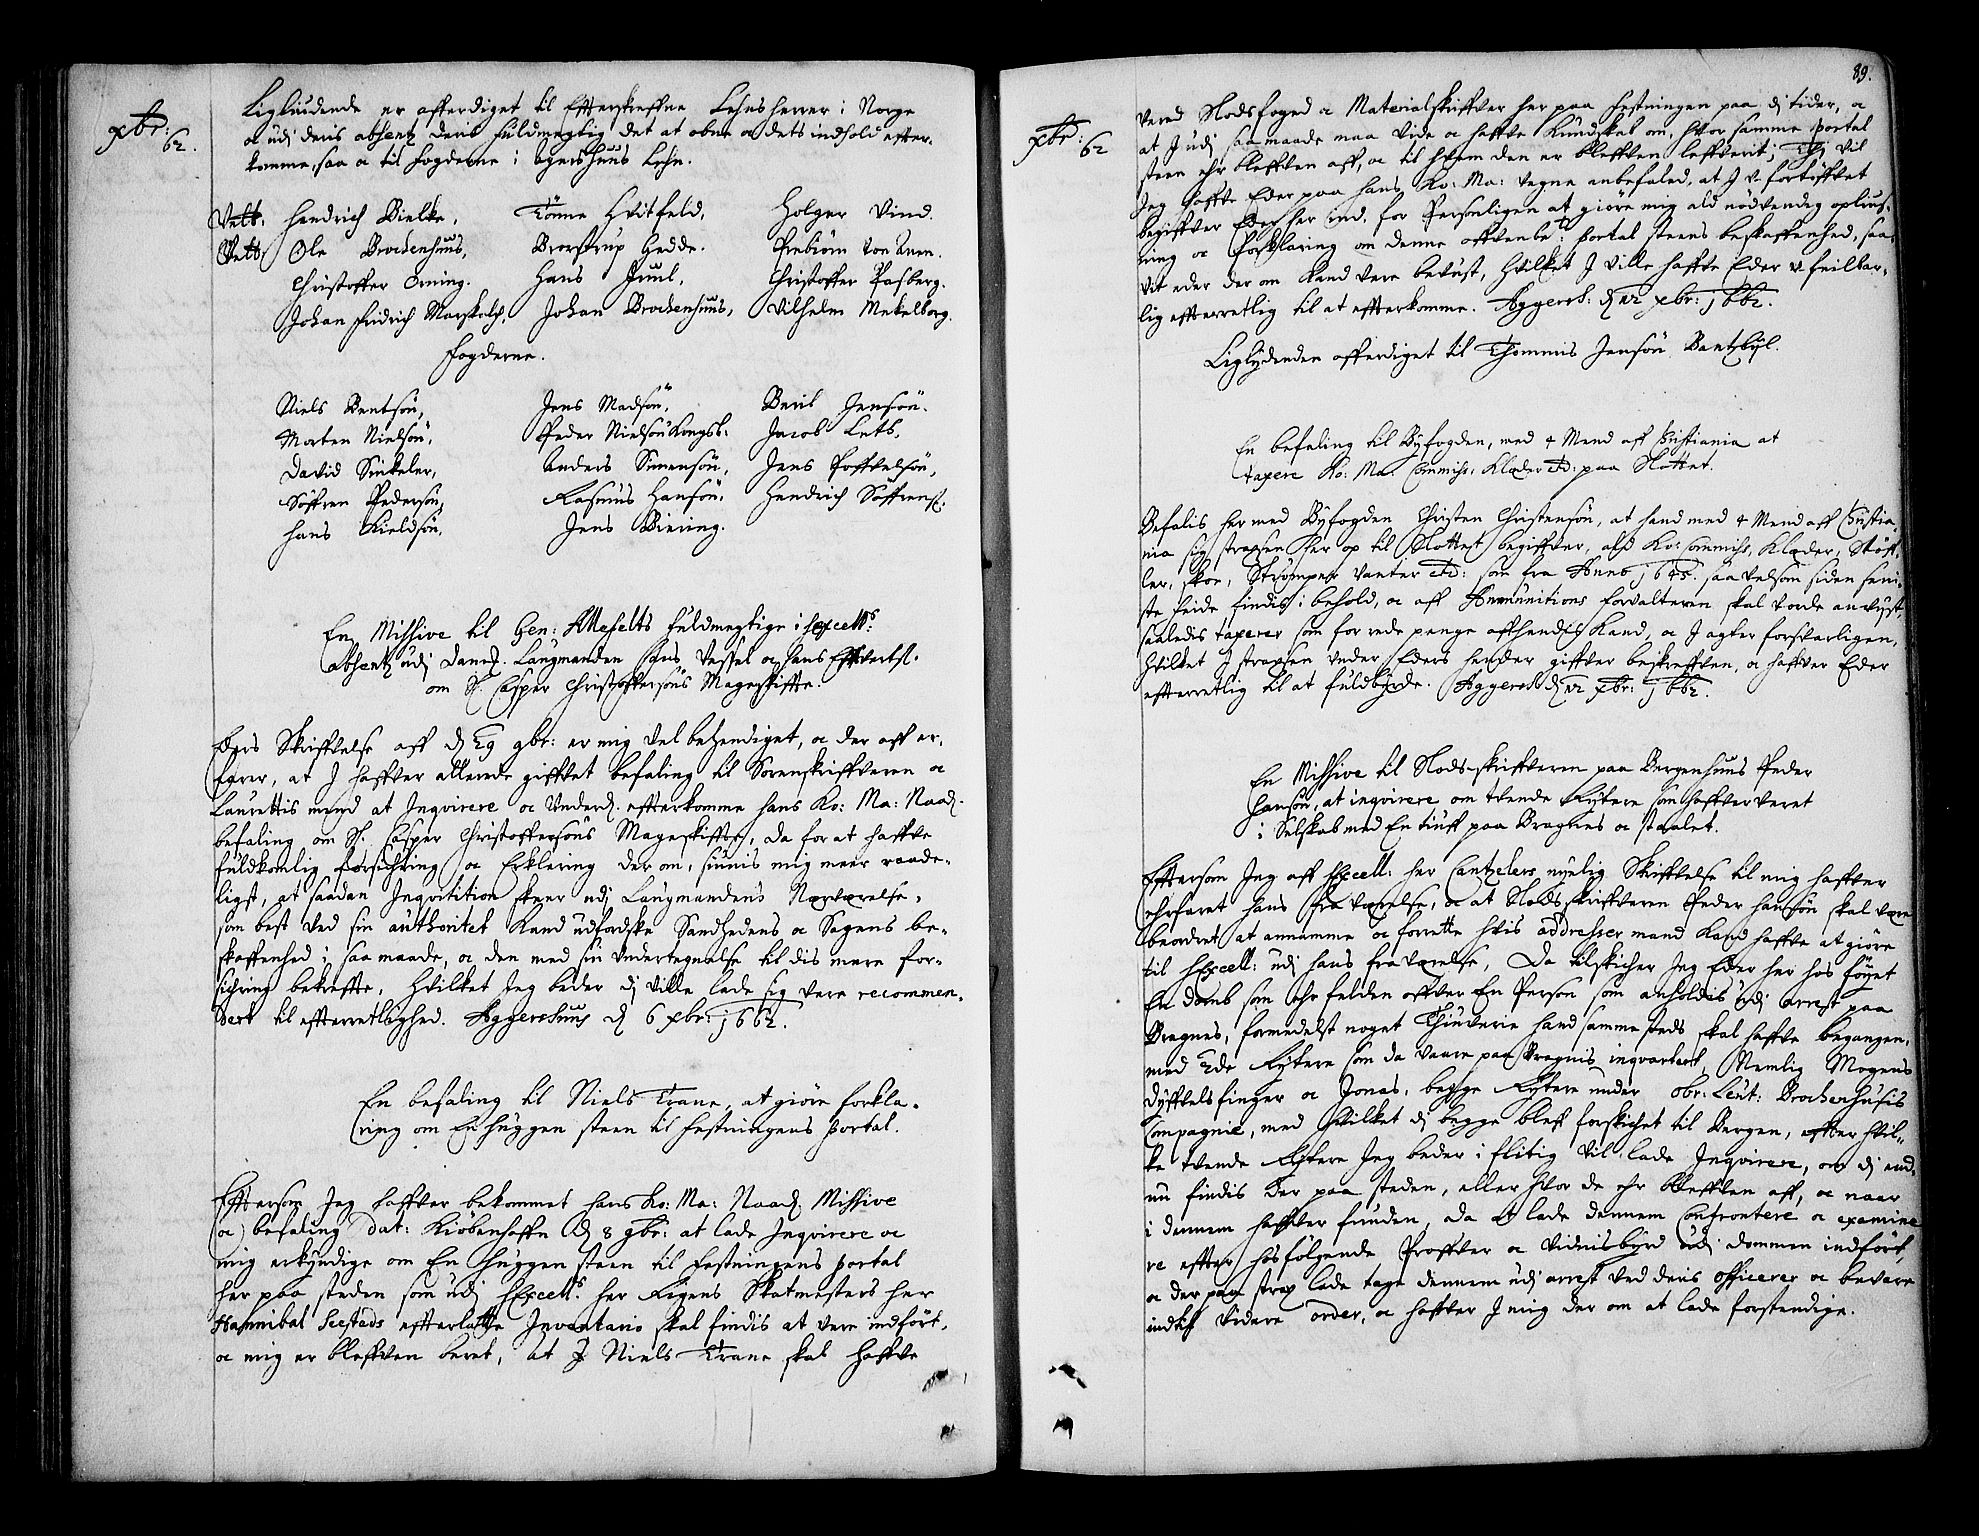 xbr:
62.
Ligliudende er afferdiget til Effterskreffne Lehnsherrer i Norge
oc udi deris absentz deris fuldmegtig det at obne oc dets indhold effter-
komme, saa oc til fogderne i Agershuus Lehn.
Velb: Hendrich Bielke, Tönne Hvitfeld, Holger Vind.
Velb: Ole Brockenhuus, Brostrup Gedde. Prebiörn von Anen.
Christoffer Orning. Hans Juul, Christoffer Pasberg.
Johan fridrich Marskalch, Johan Brockenhuus, Vilhelm Mekelborg.
fogderne.
Niels Bentsön, Jens Madsön, Bent Jensön.
Morten Nielsön, Peder Nielsön Kongsb: Jacob Luth,
David Sinkeler, Anders Simensön, Jens Poffvelsön,
Söffren Pedersön, Rasmus Hansön, Hendrich Söffrens:
Hans Kieldsön, Jens Biering.
En Missive til Gen: fuldmegtige i hExcells:
absentz udi Danm: Laugmanden Hans Vessel oc Hans Effvertss.
om H: Casper Christoffersöns Mageskiffte.
Eders Skriffvelse aff d 29 9br: er mig vel behendiget, oc der aff er,
farer, at J haffver allerede giffvet befaling til Sorenskriffveren oc
Laurettis mend at Inqvirere oc Underd. effterkomme hans Ko: Ma: Naad:
befaling om H: Casper Christoffersöns Mageskiffte, da for at haffve
fuldkomlig forsichring oc Erklering der om, siunis mig meer raade-
ligst, at saadan Inqvisition skeer udi Laugmandens Nærværelse,
som best ved sin authoritet kand udforske Sandhedens oc Sagens be-
skaffenhed i saa maade, oc den med sin undertegnelse til dis mere for-
sichring bekreffte, Hvilket Jeg beder di ville lade sig være recommen-
dert til effterretlighed. Aggershuus d 6 xbr: 1662.
En befaling til Niels Trane, at giöre forkla-
ring om En huggen steen til festningens Portal.
Effterson Jeg haffver bekommet hans Ko: Ma: Naad: Missive
oc befaling dat: Kiöbenhaffn d 8 9br: at lade Inqvirere oc
mig erkyndige om En huggen steen til festningens Portal
her paa steden som udi hExcells: her Rigens Skatmesters her
Hannibal Seesteds effterlatte Inventario skal findis at vere indfört,
oc mig er bleffven beret, at J Niels Trane skal haffve
89.
xbr:
62
vered Slodsfoged oc Materialskriffver her paa festningen paa di tider, oc
at J udi saa maade maa vide oc haffve kundskab om, hvor samme Portal
steen ehr bleffven aff, oc til hvem den er bleffven leffverit; Thi vil
Jeg haffve Eder paa hans Ko: Ma: vegne anbefaled, at J u-fortöffvet
begiffver Eder her ind, for Personligen at giöre mig ald nödvendig oplius-
ning oc forklaring om denne offvenbe: Portal steens beskaffenhed, saa
vit eder der om kand vere bevust, hvilket J ville haffve Eder u-feilbar-
lig effterretlig til at effterkomme. Aggersh: d 12 xbr: 1662.
Liglydenden afferdiget til Thommis Jensön Bantzböl.
En befaling til Byfogden, med 4 Mend aff Christiania at
taxere Ko: Ma: Commiss: Klæder etc: paa Slottet.
Befalis hermed Byfogden Christen Christensön, at hand med 4 Mend aff Christia-
nia sig straxsen her op til Slottet begiffver, ald Ko: Commiss, Klæder, Stöff-
ler, skoe, Strömper vanter etc: som fra Anno 1645. saavelsom siden seni-
ste feide findis i behold, oc aff Ammunitions forvalteren skal vorde anvyst,
saaledis taxerer som for rede penge affhendis kand, oc J agter forsvarligen,
hvilket J straxsen under Eders hender giffver beskreffven, oc haffver Eder
effterretlig til at fuldbyrde. Aggersh d 12 xbr: 1662.
En Missive til Slods-skriffveren paa Bergenhuus Peder
Hansön, at inqvirere om tvende Rytere som haffver veret
i Selskab med En tiuff paa Bragnes oc staalet.
Efftersom Jeg aff hExcell: her Cantzelers nyelig Skriffvelse til mig haffver
ehrfaret hans fraværelse, oc at Slodsskriffveren Peder Hansön skal være
beordret at annamme oc forrette hvis addresser mand kand haffve at giöre
til hExcell: udi hans fraværelse, Da tilskicher Jeg Eder her hos föyet
En domb som ehr felden offver En Person som anholdis udi arrest paa
Bragnes, formedelst noget Thiuverie hand sammesteds skal haffve begangen,
med 2de Rytere som da vaare paa Bragnis inqvartert, Nemlig Mogens
Dyffvelsfinger oc Jonas, begge Rytere under obr: Leut: Brockenhusis
Compagnie, med hvilket di begge bleff forskicket til Bergen, effter hvil-
ke tvende Rytere Jeg beder i flitig vil lade Inqvirere, om di end-
nu findis der paa steden, eller hvor de ehr bleffven aff, oc naar
i dennem haffver funden, da at lade dennem Confrontere oc examine
re effter hosfölgende Proffver oc Vidnisbyrd udi dommen indfört,
oc der paa strax lade tage dennem udi arrest ved deris officerer oc bevare
indtil videre order, oc haffver J mig der om at lade forstendige.